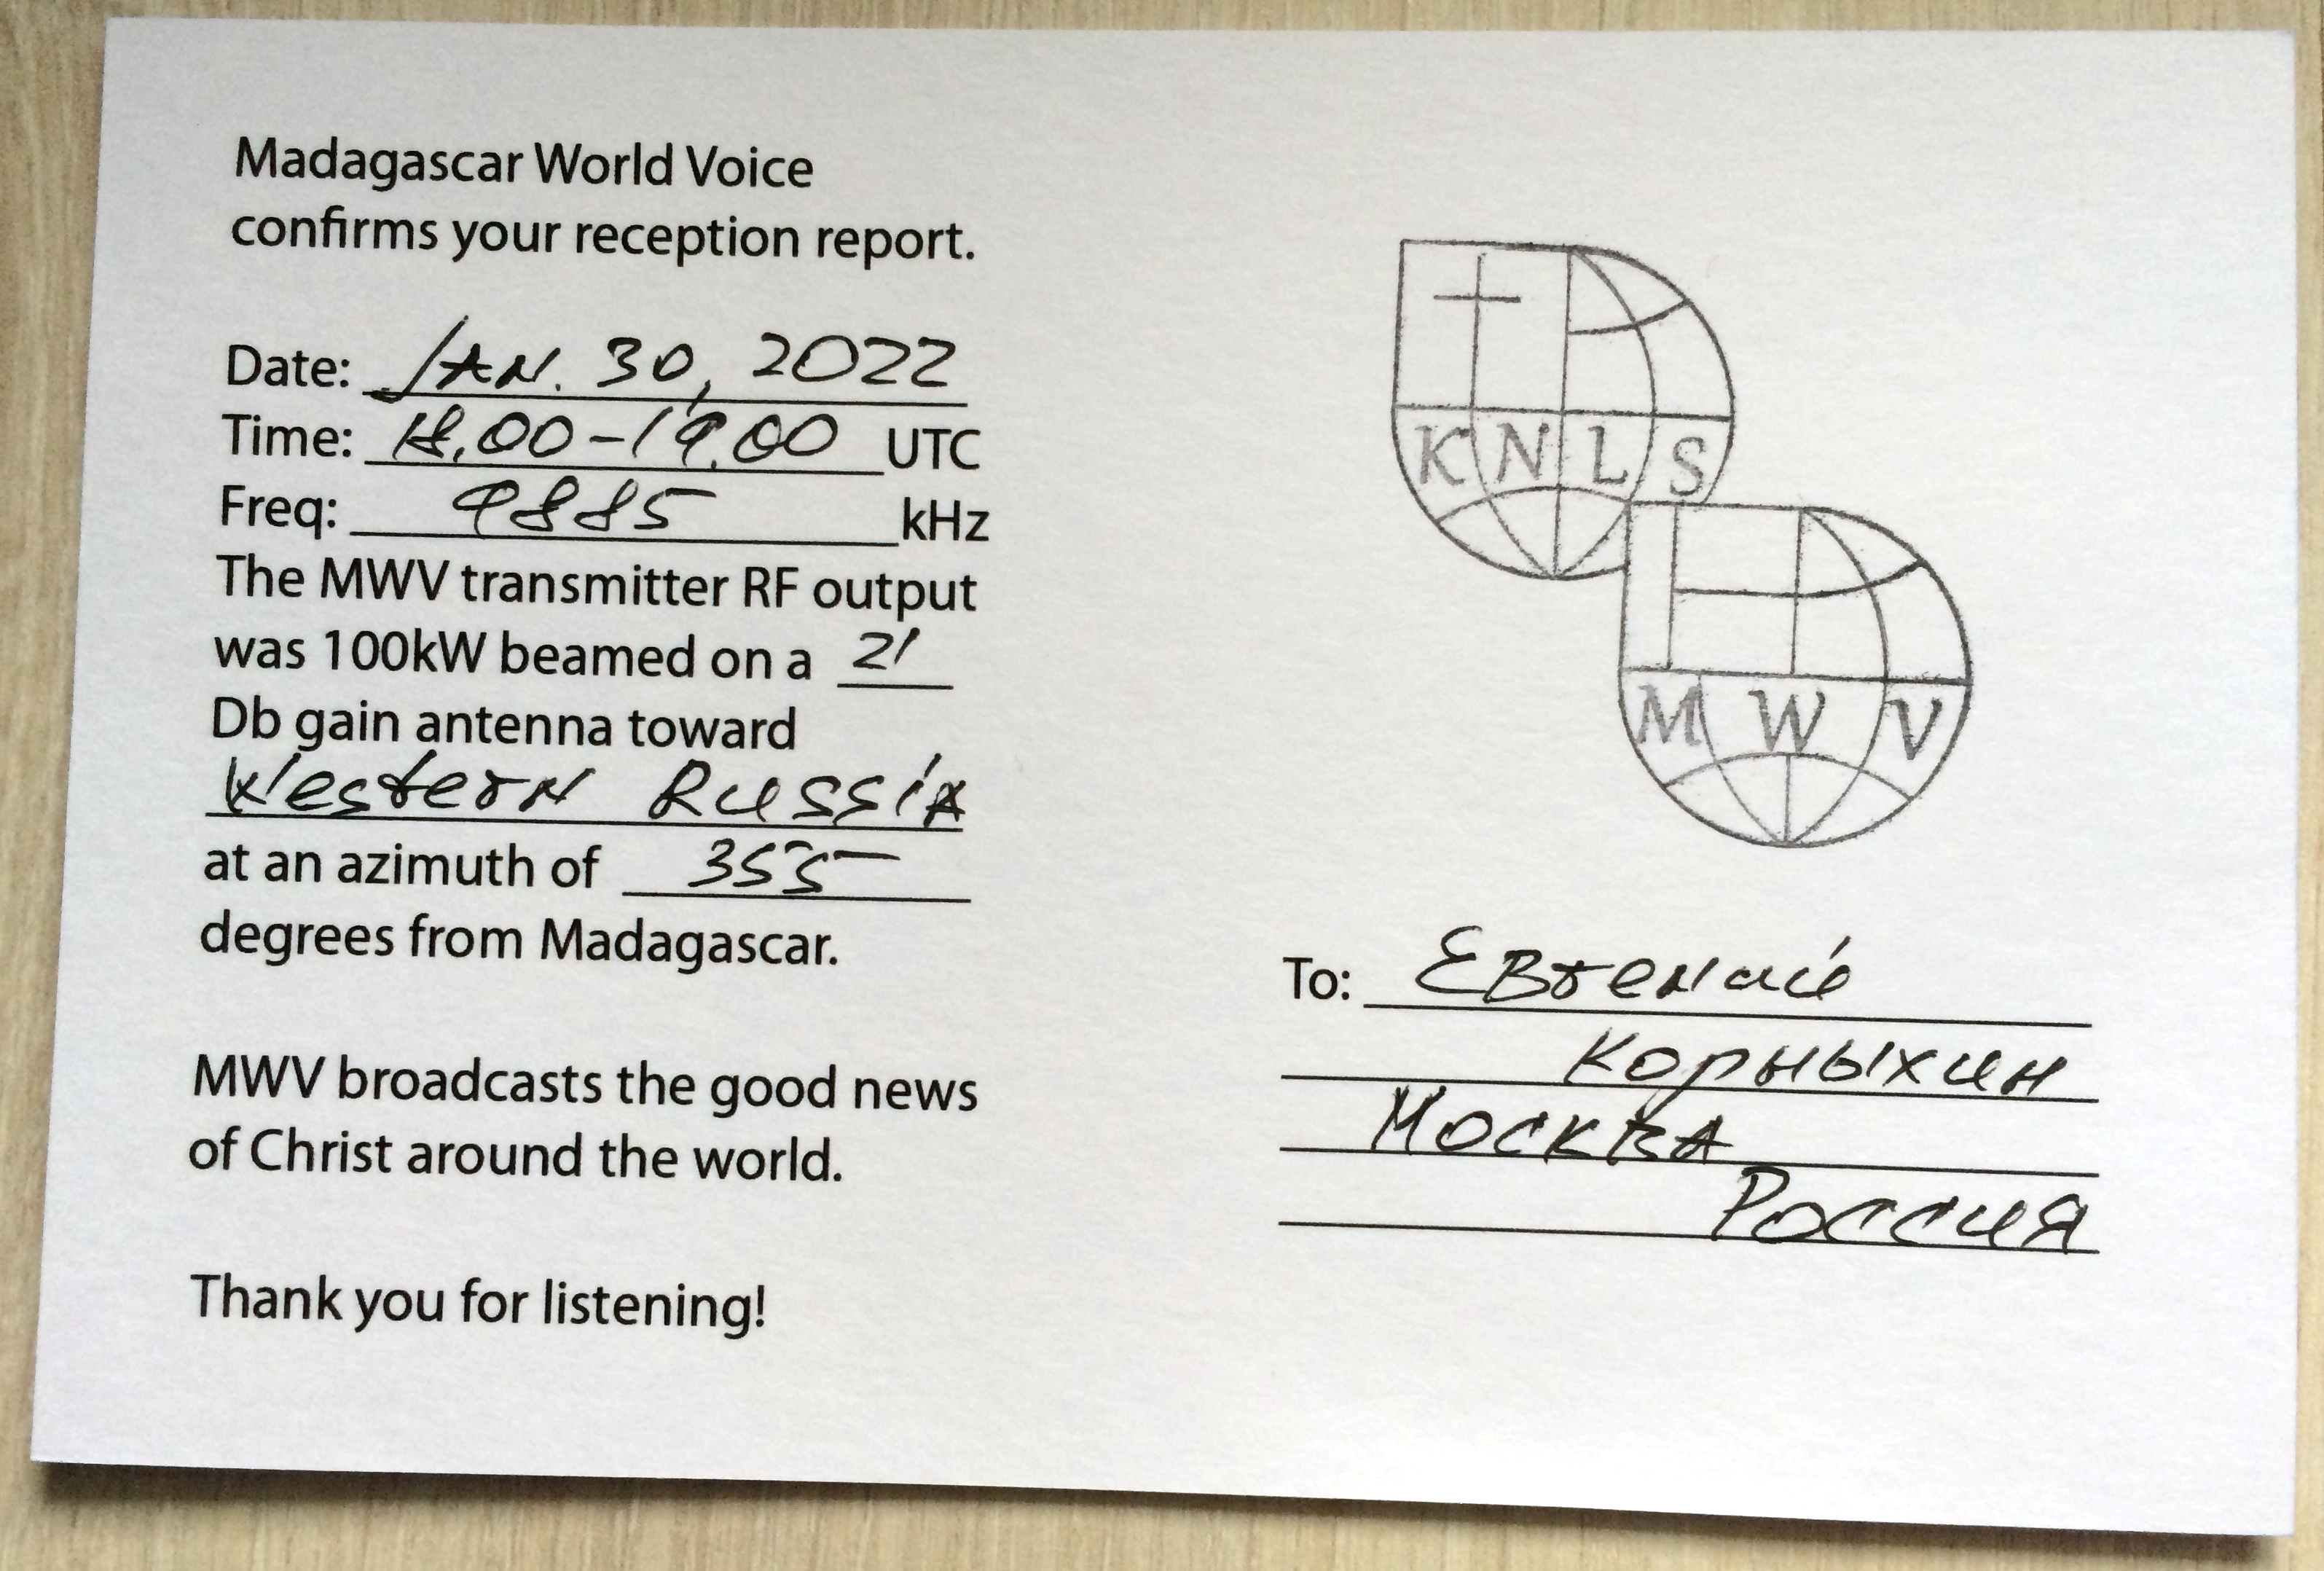 Madagascar World Voice
confirms your reception report.
Date: JAN. 30, 2022
Time: 18.00-19.00 UTC
Freq: 9885 kHz
The MWV transmitter RF output
was 100kW beamed on a 21
Db gain antenna toward
Western Russia
at an azimuth of 355
degrees from Madagascar.
MWV broadcasts the good news
of Christ around the world.
Thank you for listening!
KNLS
MWV
To: Евгений
Корныхин
Москва
Россия